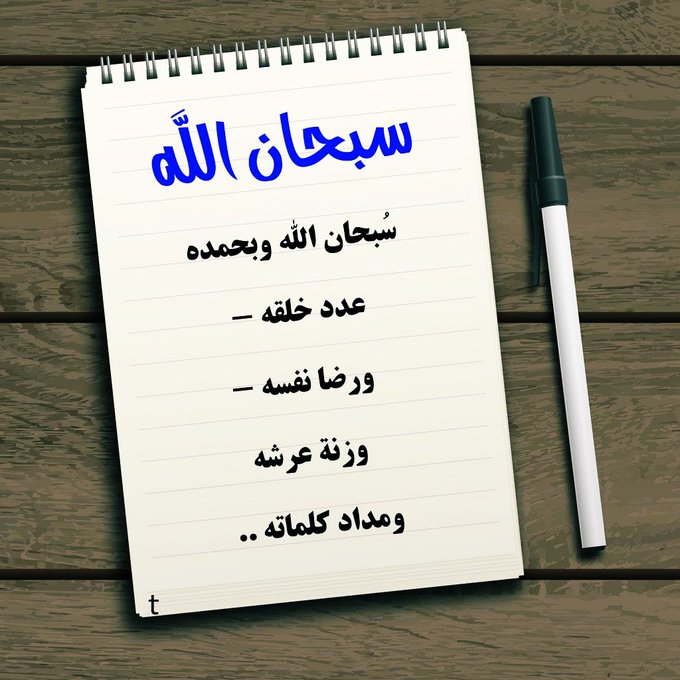 سبحان اللَّه
سُبحان الله وبحمده
عدد خلقه –
ورضا نفسه –
وزنة عرشه
ومداد كلماته ..
t